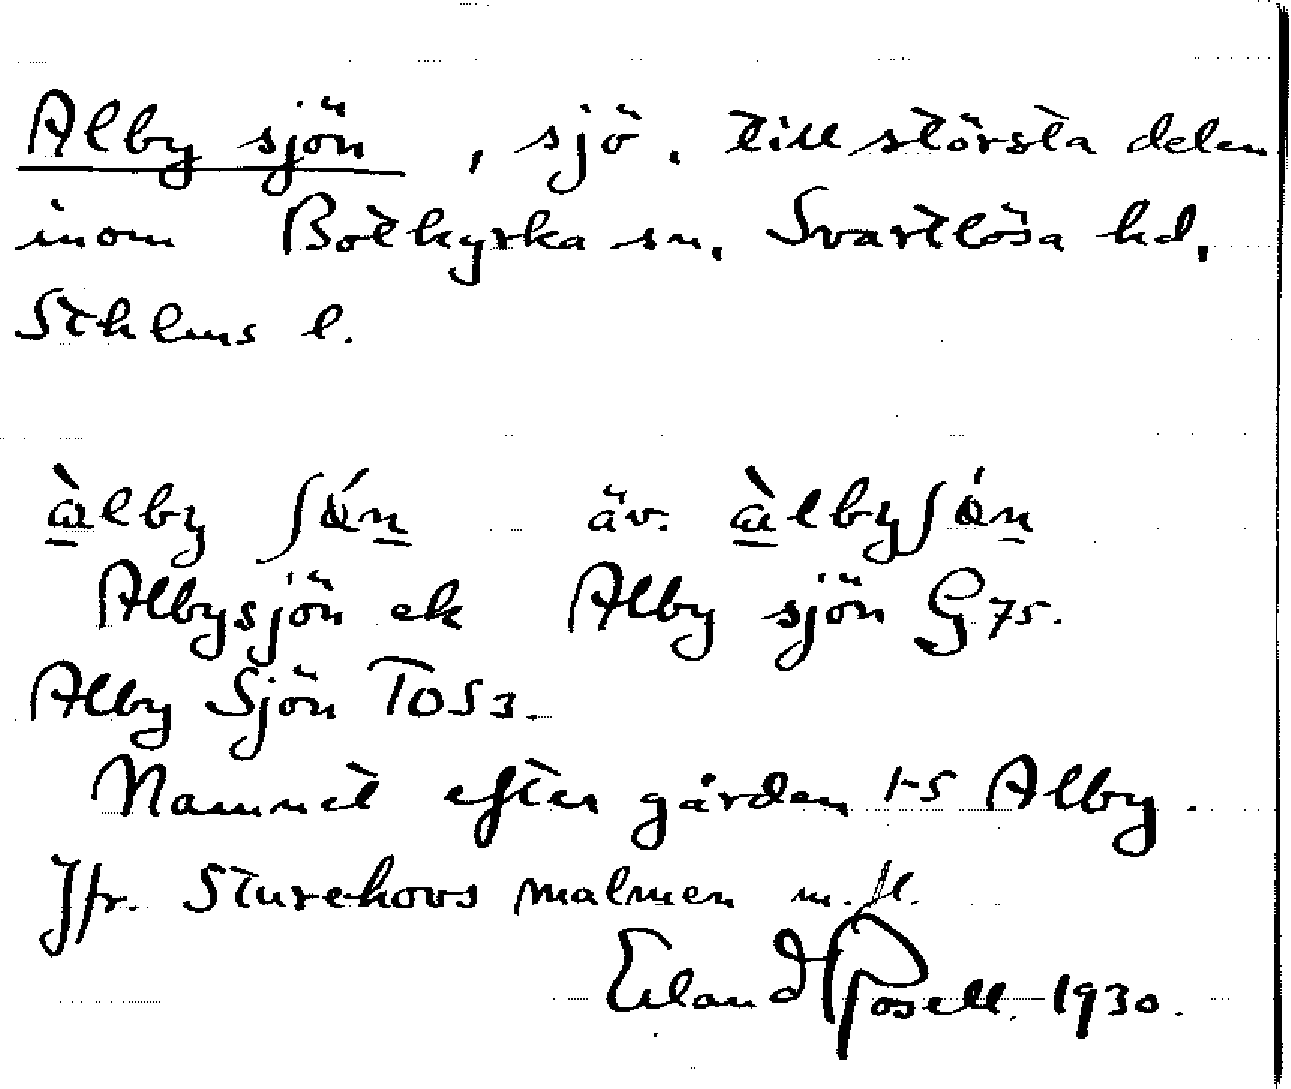 Alby sjön, sjö, till största delen
inom Botkyrka sn, Svartlösa hd,
Sthlms l.
àlby ʃǿn äv. àlbyʃǿn
Albysjön ek Alby sjön G75.
Alby Sjön TOS3.
Namnet efter gården 1-5 Alby.
Jfr. Sturehovs malmen m.fl.
Erland Rosell 1930.